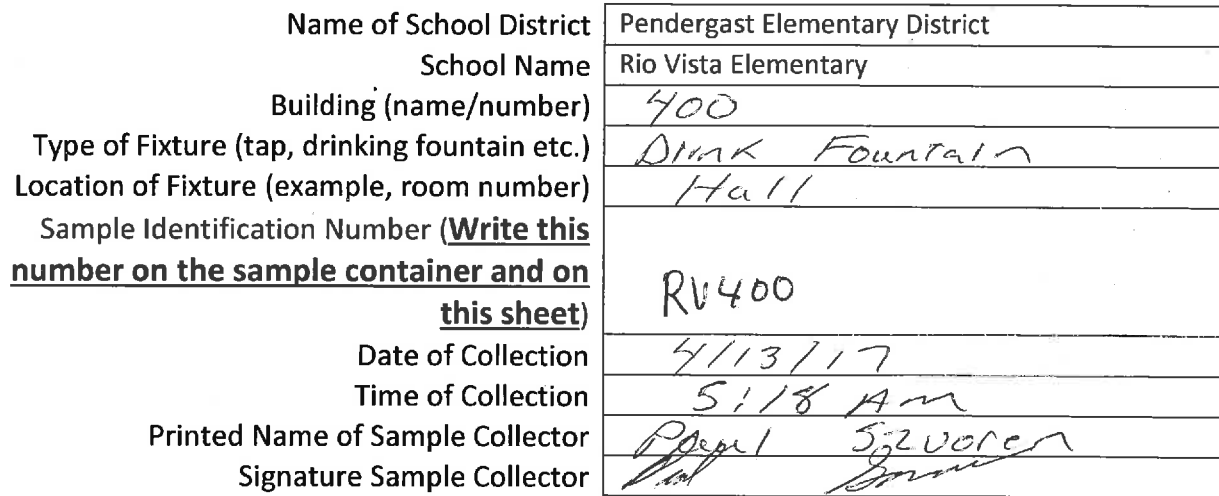 Name of School District Pendergast Elementary District
School Name Rio Vista Elementary
Building (name/number) 400
Type of Fixture (tap, drinking fountain etc.) Drink Fountain
Location of Fixture (example, room number) Hall
Sample Identification Number (Write this
number on the sample container and on
this sheet) RV400
Date of Collection 4/13/17
Time of Collection 5:18 Am
Printed Name of Sample Collector
Signature Sample Collector